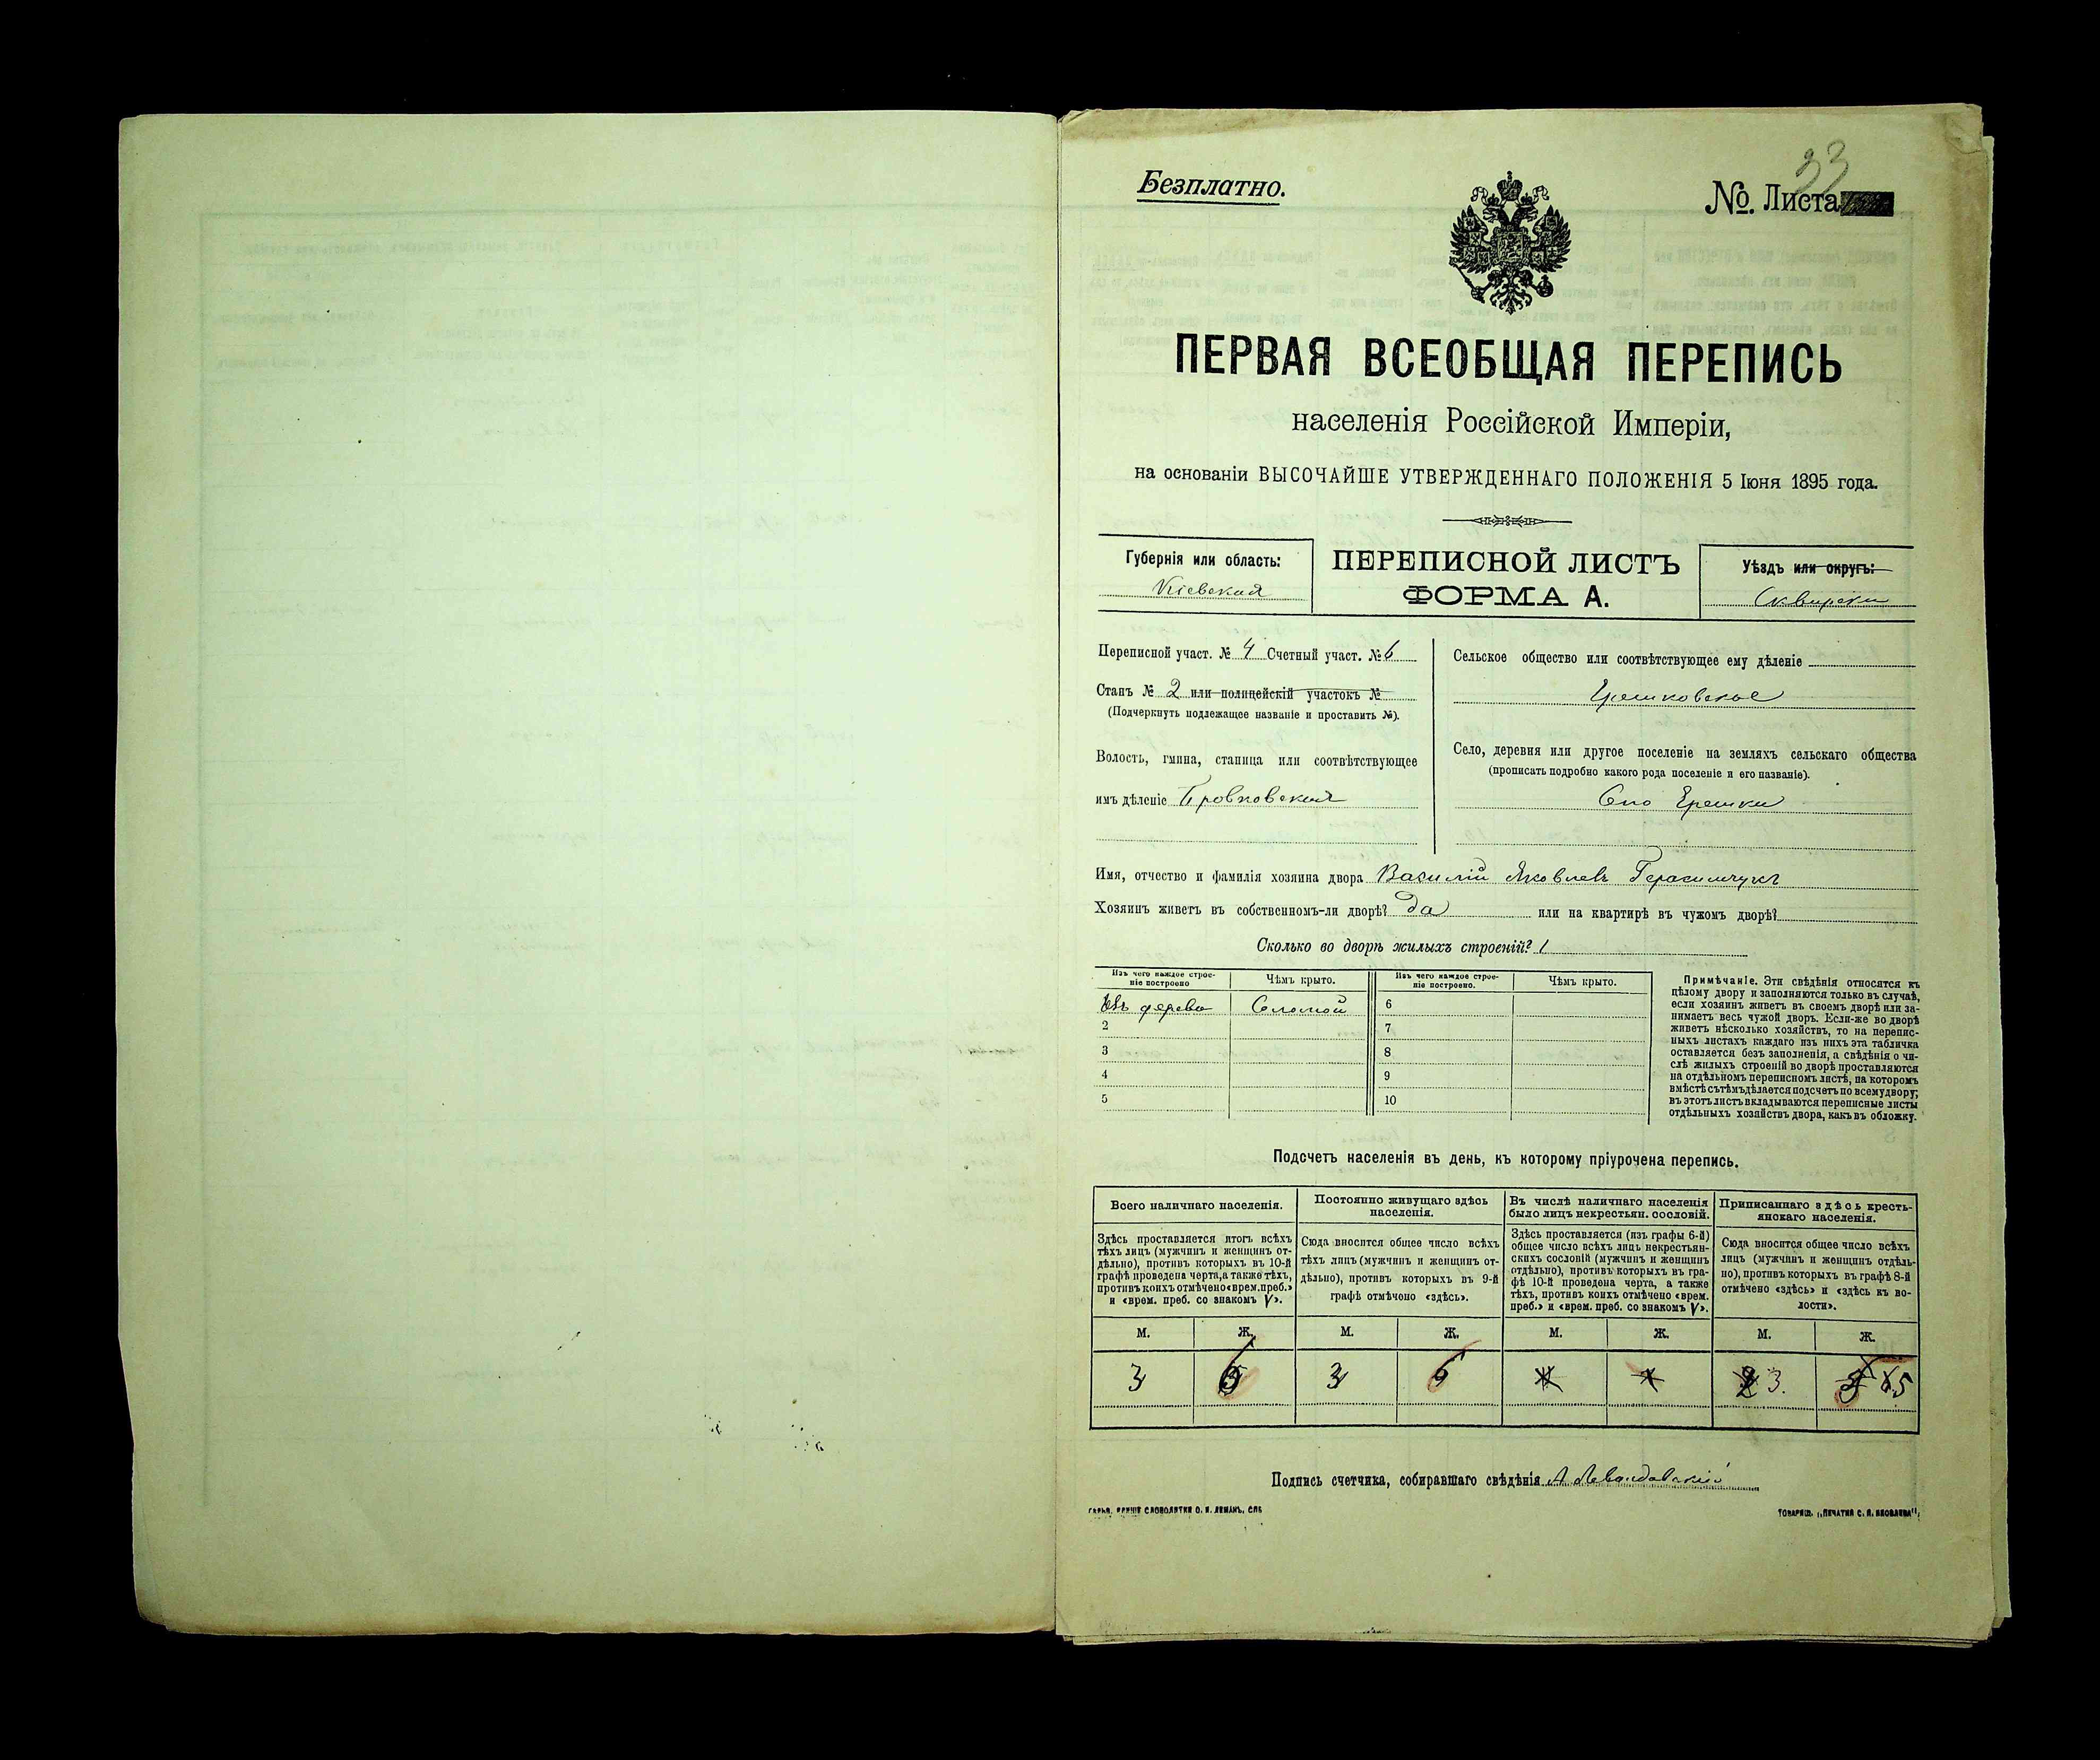 33
Безплатно.
№. Листа
ПЕРВАЯ ВСЕОБЩАЯ ПЕРЕПИСЬ
населенія Россійской Имперіи,
на основаніи ВЫСОЧАЙШЕ УТВЕРЖДЕННАГО ПОЛОЖЕНІЯ 5 Іюня 1895 года.
Губернія или область:
Кіевская
ПЕРЕПИСНОЙ ЛИСТЪ
ФОРМА А.
Уѣздъ или округъ:
Сквирскій
Переписной участ. № 4 Счетный участ. № 6
Станъ № 2 или полицейскій участокъ №
(Подчеркнуть подлежащее названіе и проставить №).
Волость, гмина, станица или соотвѣтствующее
имъ дѣленіе
Сельское общество или соотвѣтствующее ему дѣленіе
Село, деревня или другое поселеніе на земляхъ сельскаго общества
(прописать подробно какого рода поселеніе и его названіе).
Имя, отчество и фамилія хозяина двора Василій Яковлевъ Герасимчукъ
Хозяинъ живетъ въ собственномъ-ли дворѣ? да или на квартирѣ въ чужомъ дворѣ?
Сколько во дворѣ жилыхъ строеній? 1
Изъ чего каждое строе-
ніе построено
Чѣмъ крыто.
Изъ чего каждое строе-
ніе построено.
Чѣмъ крыто.
Изъ дерева Соломой 6
2 7
3 8
4 9
5 10
Примѣчаніе. Эти свѣдѣнія относятся къ
цѣлому двору и заполняются только въ случаѣ,
если хозяинъ живетъ въ своемъ дворѣ или за-
нимаетъ весь чужой дворъ. Если-же во дворѣ
живетъ нѣсколько хозяйствъ, то на перепис-
ныхъ листахъ каждаго изъ нихъ эта табличка
оставляется безъ заполненія, а свѣдѣнія о чи-
слѣ жилыхъ строеній во дворѣ проставляются
на отдѣльномъ переписномъ листѣ, на которомъ
вмѣстѣ съ тѣмъ дѣлается подсчетъ по всему двору;
въ этотъ листъ вкладываются переписные листы
отдѣльныхъ хозяйствъ двора, какъ въ обложку.
Подсчетъ населенія въ день, къ которому пріурочена перепись.
Всего наличнаго населенія.
Здѣсь проставляется итогъ всѣхъ
тѣхъ лицъ (мужчинъ и женщинъ от-
дѣльно), противъ которыхъ въ 10-й
графѣ проведена черта, а также тѣхъ,
противъ коихъ отмѣчено «врем. преб.»
и «врем. преб. со знакомъ V».
Постоянно живущаго здѣсь
населенія.
Сюда вносится общее число всѣхъ
тѣхъ лицъ (мужчинъ и женщинъ от-
дѣльно), противъ которыхъ въ 9-й
графѣ отмѣчено «здѣсь».
Въ числѣ наличнаго населенія
было лицъ некрестьян. сословій.
Здѣсь проставляется (изъ графы 6-й)
общее число всѣхъ лицъ некрестьян-
скихъ сословій (мужчинъ и женщинъ
отдѣльно), противъ которыхъ въ гра-
фѣ 10-й проведена черта, а также
тѣхъ, противъ коихъ отмѣчено «врем.
преб.» и «врем. преб. со знакомъ V».
Приписаннаго здѣсь кресть-
янскаго населенія.
Сюда вносится общее число всѣхъ
лицъ (мужчинъ и женщинъ отдѣль-
но), противъ которыхъ въ графѣ 8-й
отмѣчено «здѣсь» и «здѣсь къ во-
лости».
М. Ж. М. Ж. М. Ж. М. Ж.
3 6 3 6 3. 5
Подпись счетчика, собиравшаго свѣдѣнія А Левандовскій
СПБ
ТОВАРИЩ. „ПЕЧАТНЯ С. П. ЯКОВЛЕВА“